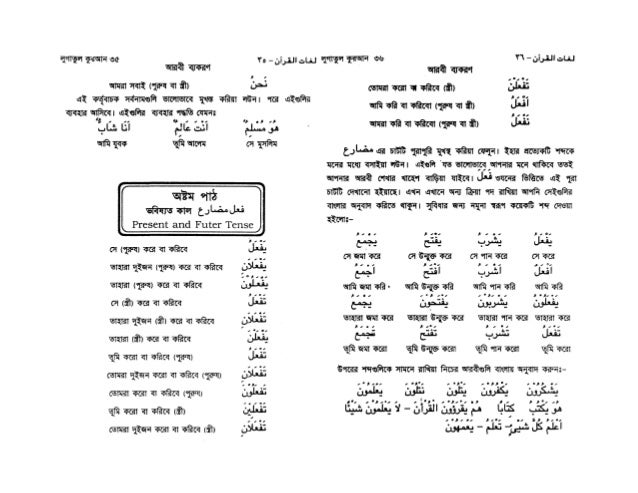 লুগাতুল কুরআন ৩৫ لغات القرآن - ٣٥
আরবী ব্যকরণ
আমরা সবাই (পুরুষ বা স্ত্রী) نَحْنُ
এই কর্তৃবাচক সর্বনামগুলি ভালোভাবে মুখস্ত করিয়া লউন। পরে এইগুলির
ব্যবহার আসিবে। এইগুলির ব্যবহার পদ্ধতি যেমনঃ
هُوَ مُسْلِمٌ أَنْتَ عَالِمٌ أَنَا شَابٌّ
আমি যুবক তুমি আলেম সে মুসলিম
অষ্টম পাঠ
ভবিষ্যত কাল فعل مضارع
Present and Futer Tense
সে (পুরুষ) করে বা করিবে يَفْعَلُ
তাহারা দুইজন (পুরুষ) করে বা করিবে يَفْعَلَانِ
তাহারা (পুরুষ) করে বা করিবে يَفْعَلُوْنَ
সে (স্ত্রী) করে বা করিবে تَفْعَلُ
তাহারা দুইজন (স্ত্রী) করে বা করিবে تَفْعَلَانِ
তাহারা (স্ত্রী) করে বা করিবে يَفْعَلْنَ
তুমি করো বা করিবে (পুরুষ) تَفْعَلُ
তোমরা দুইজন করো বা করিবে (পুরুষ) تَفْعَلَانِ
তোমরা করো বা করিবে (পুরুষ) تَفْعَلُوْنَ
তুমি করো বা করিবে (স্ত্রী) تَفْعَلِيْنَ
তোমরা দুইজন করো বা করিবে (স্ত্রী) تَفْعَلَانِ
লুগাতুল কুরআন ৩৬ لغات القرآن - ٣٦
আরবী ব্যকরণ
তোমরা করো বা করিবে (স্ত্রী) تَفْعَلْنَ
আমি করি বা করিবো (পুরুষ বা স্ত্রী) أَفْعَلُ
আমরা করি বা করিবো (পুরুষ বা স্ত্রী) نَفْعَلُ
مضارع এর চার্টটি পুরাপুরি মুখস্থ করিয়া ফেলুন। ইহার প্রত্যেকটি শব্দকে
মনের মধ্যে বসাইয়া লউন। এইগুলি যত ভালোভাবে আপনার মনে থাকিবে ততই
আপনার আরবী শেখার খাহেশ বাড়িয়া যাইবে। فعل ওযনের ভিত্তিতে এই পুরা
চার্টটি দেখানো হইয়াছে। এখন এখানে অন্য ক্রিয়া পদ রাখিয়া আপনি সেইগুলির
বাংলার অনুবাদ করিতে থাকুন। সুবিধার জন্য নমুনা স্বরূপ কয়েকটি শব্দ দেওয়া
হইলোঃ–
يَجْمَعُ يَفْتَحُ يَشْرَبُ يَفْعَلُ
সে জমা করে সে উন্মুক্ত করে সে পান করে সে করে
أَجْمَعُ أَفْتَحُ أَشْرَبُ أَفْعَلُ
আমি জমা করি আমি উন্মুক্ত করি আমি পান করি আমি করি
يَجْمَعُ يَفْتَحُوْنَ يَشْرَبُوْنَ يَفْعَلُوْنَ
তাহারা জমা করে তাহারা উন্মুক্ত করে তাহারা পান করে তাহারা করে
تَجْمَعُ تَفْتَحُ تَشْرَبُ تَفْعَلُ
তুমি জমা করো তুমি উন্মুক্ত করো তুমি পান করো তুমি করো
উপরের শব্দগুলিকে সামনে রাখিয়া নিচের আরবীগুলি বাংলায় অনুবাদ করুনঃ–
يَشْكُرُوْنَ يَكْفُرُوْنَ يَتْلُوْنَ تَتْلُوْنَ يَعْلَمُوْنَ
هُوَ يَكْتُبُ كِتَابًا هُمْ يَقْرَؤُوْنَ الْقُرْآنَ – لَا يَعْلَمُوْنَ شَيْئًا
أَعْلَمُ كُلَّ شَيْءٍ – تَعْلَمُ – يَعْمَهُوْنَ